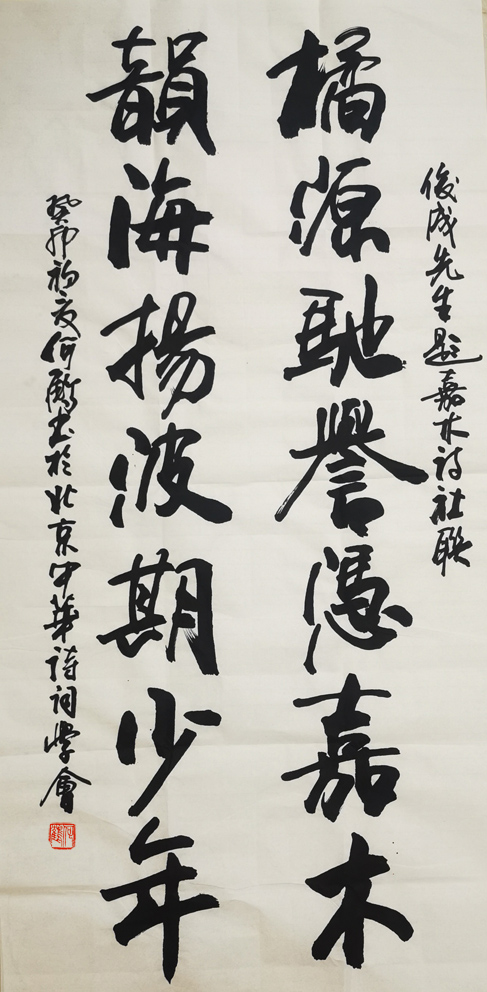 俊成先生题嘉木诗社联
橘源馳譽憑嘉木
韻海揚波期少年
癸卯初夏何鹤书於北京中華詩词學會